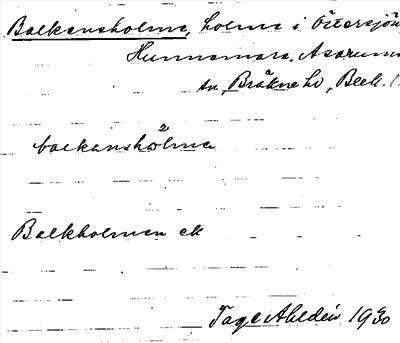 Balkansholme, holme i Östersjön
Hunnamara, Asarums
sn, Bräkne hd, Blek. l.
balkanshòlma
Balkholmen ek
Tage Ahldén 1930